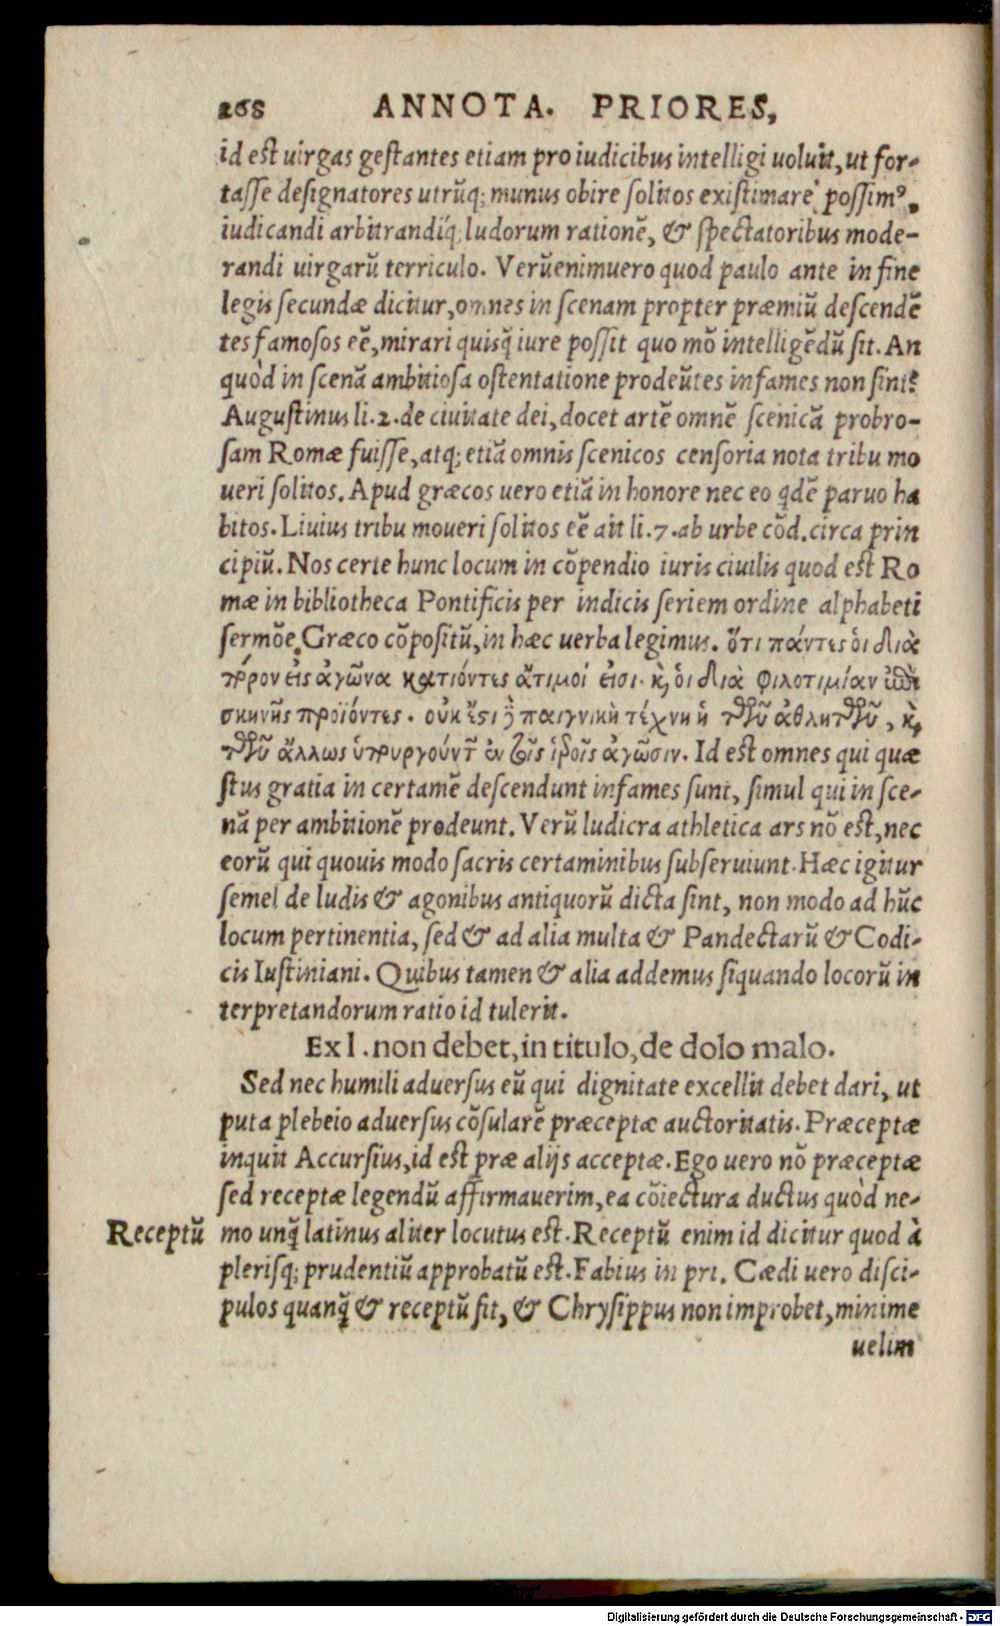 268 ANNOTA. PRIORES,
id est uirgas gestantes etiam pro iudicibus intelligi uoluit, ut for-
tasse designatores utrũq; munus obire solitos existimare possimꝰ.
iudicandi arbitrandíq; ludorum rationẽ, & spectatoribus mode-
randi uirgarũ terriculo. Verũenimuero quod paulo ante in fine
legis secundæ dicitur, omnes in scenam propter præmiũ descendẽ
tes famosos eẽ, mirari quisq̃ iure possit quo mõ intelligẽdũ sit. An
quòd in scenã ambitiosa ostentatione prodeũtes infames non sint?
Augustinus li.2.de ciuitate dei, docet artẽ omnẽ scenicã probro-
sam Romæ fuisse, atq; etiã omnis scenicos censoria nota tribu mo
ueri solitos. Apud græcos uero etiã in honore nec eo qdẽ paruo ha
bitos. Liuius tribu moueri solitos eẽ ait li.7.ab urbe cõd.circa prin
cipiũ. Nos certe hunc locum in cõpendio iuris ciuilis quod est Ro
mæ in bibliotheca Pontificis per indicis seriem ordine alphabeti
sermõe Græco cõpositũ, in hæc uerba legimus. ὅτι πάντες ὁι διὰ
πόρον εἰς ἀγῶνα κατιόντες ἄτιμοί εἰσι. κ̀ ὁι διὰ φιλοτιμίαν ἐπὶ
σκηνῆς προϊόντες. οὐκ ἔστι ἢ παιγνικὴ τέχνη ἡ τῶν ἀθλητῶν, κ̀
τῶν ἄλλως ὑπουργούντ̃ ἐν τοῖς ἱεροῖς ἀγῶσιν. Id est omnes qui quæ
stus gratia in certamẽ descendunt infames sunt, simul qui in sce-
nã per ambitionẽ prodeunt. Verũ ludicra athletica ars nõ est, nec
eorũ qui quouis modo sacris certaminibus subseruiunt. Hæc igitur
semel de ludis & agonibus antiquorũ dicta sint, non modo ad hũc
locum pertinentia, sed & ad alia multa & Pandectarũ & Codi-
cis Iustiniani. Quibus tamen & alia addemus siquando locorũ in
terpretandorum ratio id tulerit.
Ex l.non debet, in titulo, de dolo malo.
Sed nec humili aduersus eũ qui dignitate excellit debet dari, ut
puta plebeio aduersus cõsularẽ præceptæ auctoritatis. Præceptæ
inquit Accursius, id est præ alijs acceptæ. Ego uero nõ præceptæ
sed receptæ legendũ affirmauerim, ea cõiectura ductus quòd ne-
Receptũ mo unq̃ latinus aliter locutus est. Receptũ enim id dicitur quod à
plerisq; prudentiũ approbatũ est. Fabius in pri. Cædi uero disci-
pulos quanq̃ & receptũ sit, & Chrysippus non improbet, minime
uelim
Digitalisierung gefördert durch die Deutsche Forschungsgemeinschaft - DFG